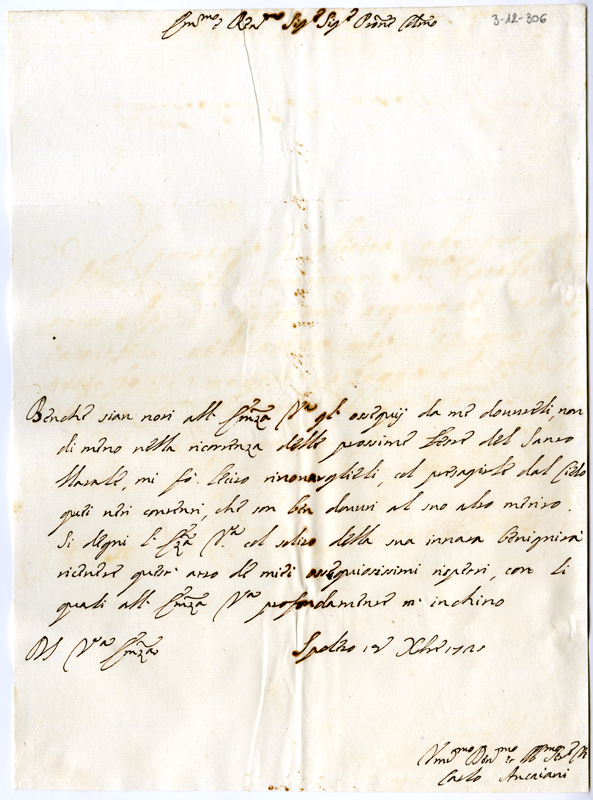 3-12-306
Em.mo e Rev.mo Sig.r Sig.r Prone Col.mo
Benche sian noti all' Em.za V.ra gl' ossequij da me douuteli, non
di meno nella ricorrenza delle prossime feste del Santo
Natale, mi fò lecito rinouarglieli, col pregarle dal Cielo
quei veri contenti, che son ben douuti al suo alto merito.
Si degni l' Em.za V.ra col solito della sua innata benignità
riceuere quest' atto de miei ossequiosissimi rispetti, con li
quali all' Em.za V.ra profondamente m' inchino
Di V.ra Em.za Spoleto Xbre
Vm.mo Deu.mo et
Carlo Ancaiani